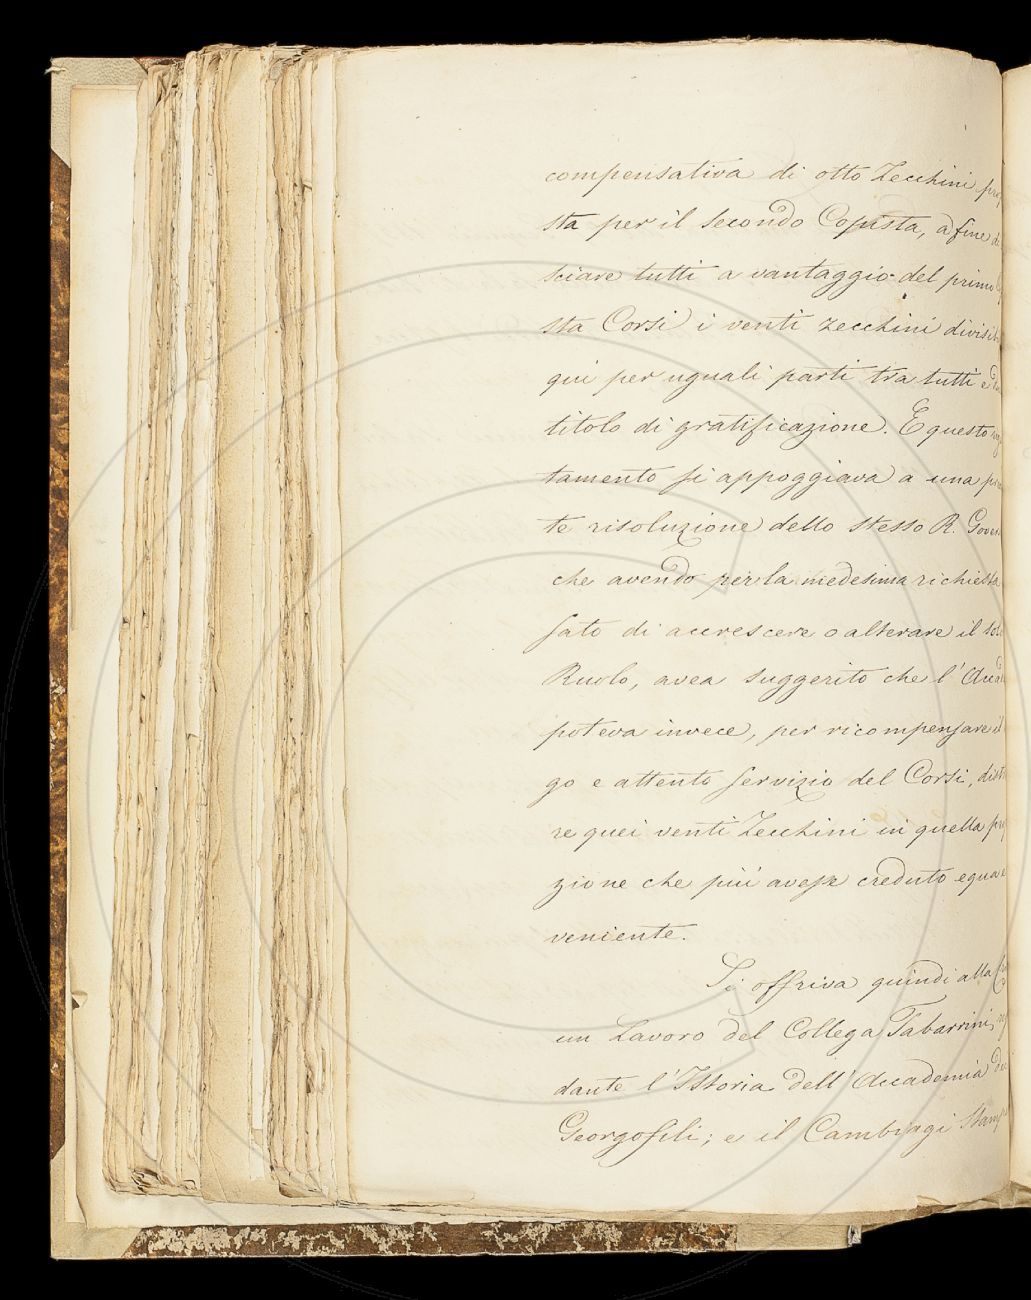 compensativa di otto Zecchini prop
sta per il secondo Copista, a fine di
sciare tutti a vantaggio del primo Co
sta Corsi i venti zecchini divisi
qui per uguali parti tra tutti e
titolo di gratificazione. E questo
tamento si appoggiava a una
te risoluzione dello stesso R. Gover
che avendo per la medesima richiesta
sato di accrescere o alterare il sol
Ruolo, avea suggerito che l'Acca
poteva invece, per ricompensare il
go e attento servizio del Corsi, dist
re quei venti Zecchini in quella pro
zione che più avesse creduto equa e
veniente.
Si offriva quindi alla
un Lavoro del Collega Tabarrini,
dante l'Istoria dell'Accademia de
Georgofili; e il Cambiagi Stamp